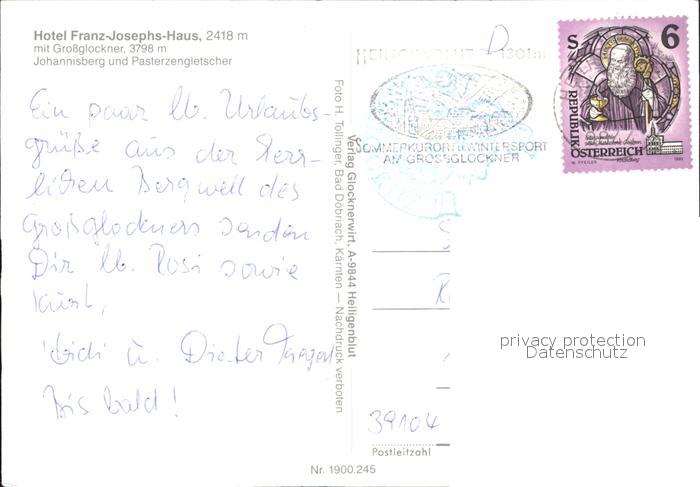 Hotel Franz-Josephs-Haus, 2418 m
mit Großglockner, 3798 m
Johannisberg und Pasterzengletscher
Ein paar lb. Urlaubs-
grüße aus der herr-
lichen Bergwelt des
Großglockners senden
Dir lb. Rosi sowie
Kurt,
Heidi u. Dieter
Bis bald!
Foto H. Tollinger, Bad Döbriach, Kärnten — Nachdruck verboten
Verlag Glocknerwirt, A-9844 Heiligenblut
Nr. 1900.245
D
HEILIGENBLUT 1301m
SOMMERKURORT u. WINTERSPORT
AM GROSSGLOCKNER
S 6
REPUBLIK
ÖSTERREICH
39104
Postleitzahl
privacy protection
Datenschutz